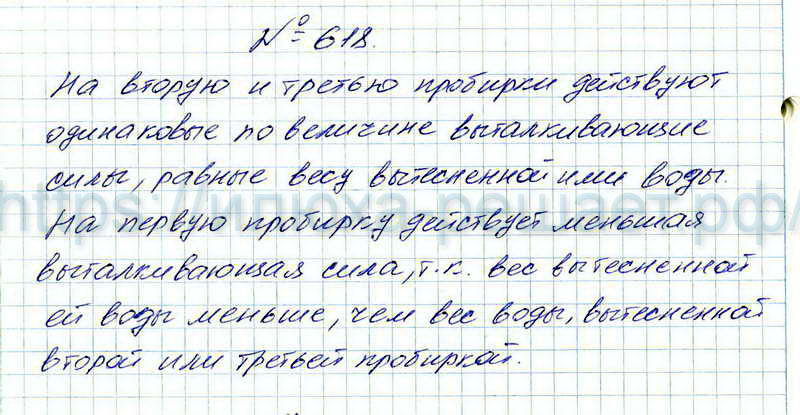 № 618.
На вторую и третью пробирки действуют
одинаковые по величине выталкивающие
силы, равные весу вытесненной ими воды.
https://илюха-решает.рф/
На первую пробирку действует меньшая
выталкивающая сила, т.к. вес вытесненной
ей воды меньше, чем вес воды, вытесненной
второй или третьей пробиркой.